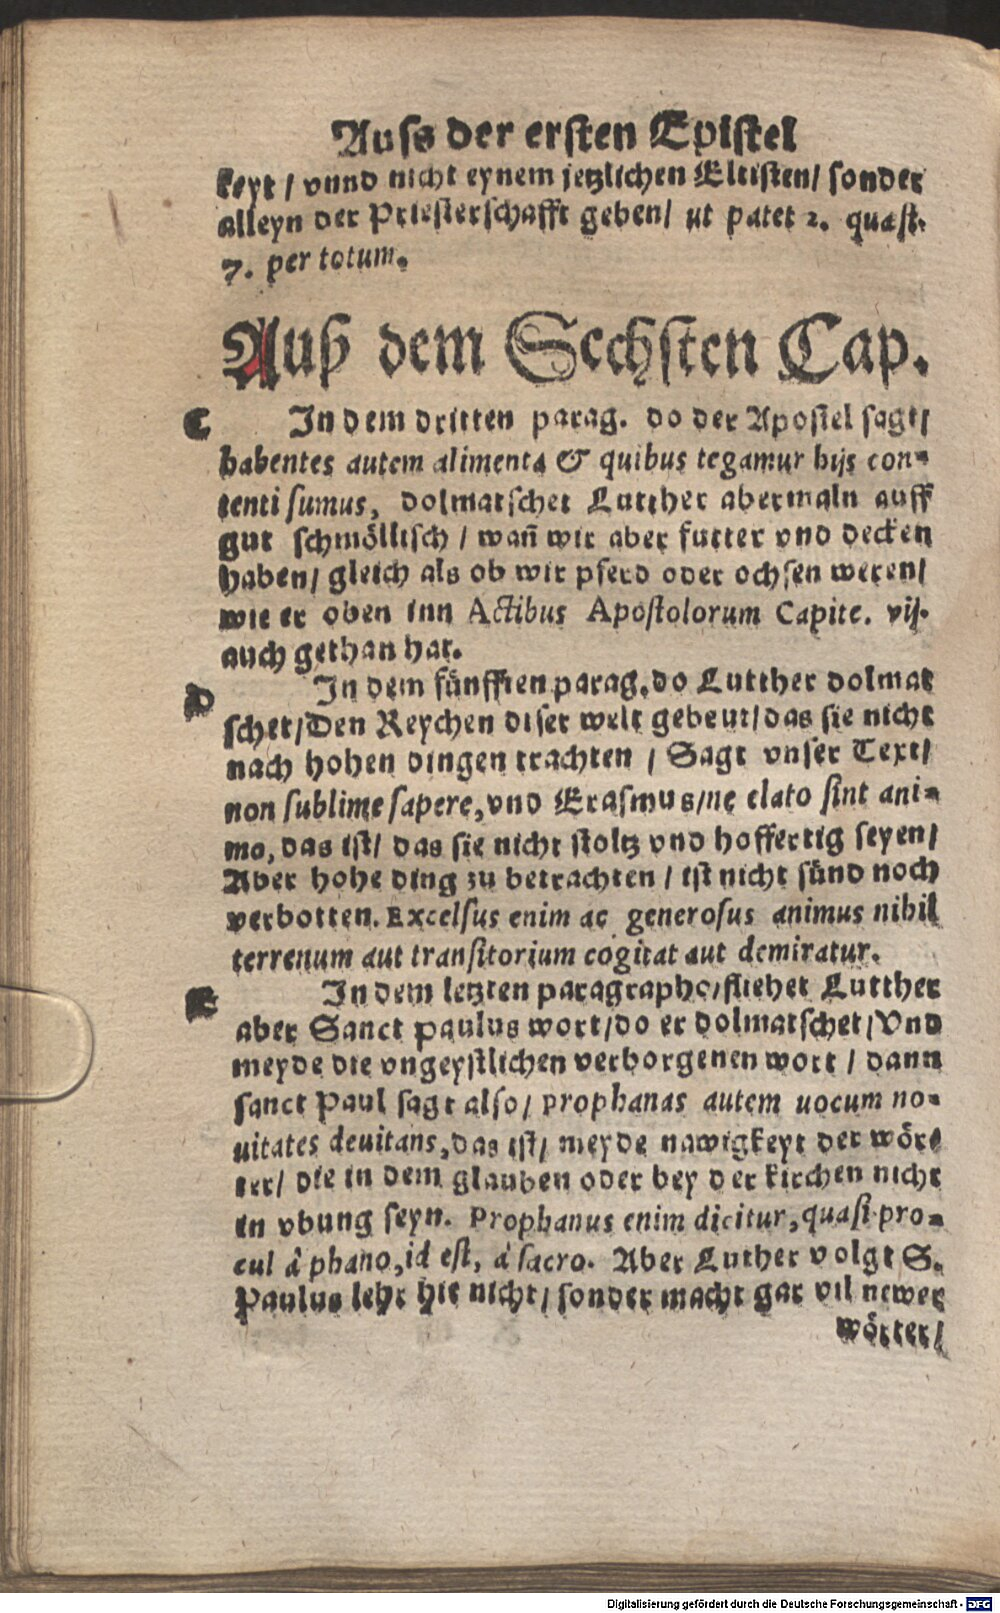 Auss der ersten Epistel
keyt / vnnd nicht eynem jetzlichen Eltisten / sonder
alleyn der Priesterschafft geben / ut patet 2. quæst.
7. per totum.
Auß dem Sechsten Cap.
C In dem dritten parag. do der Apostel sagt /
habentes autem alimenta & quibus tegamur hijs con-
tenti sumus, dolmatschet Lutther abermaln auff
gut schmöllisch / wañ wir aber futter vnd decken
haben / gleich als ob wir pferd oder ochsen weren /
wie er oben inn Actibus Apostolorum Capite. vij.
auch gethan hat.
D In dem fünfften parag. do Lutther dolmat
schet / Den Reychen diser welt gebeut / das sie nicht
nach hohen dingen trachten / Sagt vnser Text /
non sublime sapere, vnd Erasmus / ne elato sint ani-
mo, das ist / das sie nicht stoltz vnd hoffertig seyen /
Aber hohe ding zu betrachten / ist nicht sünd noch
verbotten. Excelsus enim ac generosus animus nihil
terrenum aut transitorium cogitat aut demiratur.
E In dem letzten paragrapho / fliehet Lutther
aber Sanct Paulus wort / do er dolmatschet / Vnd
meyde die vngeystlichen verborgenen wort / dann
sanct Paul sagt also / prophanas autem uocum no-
uitates deuitans, das ist / meyde nawigkeyt der wör-
ter / die in dem glauben oder bey der kirchen nicht
in vbung seyn. Prophanus enim dicitur, quasi pro-
cul à phano, id est, à sacro. Aber Luther volgt S.
Paulus lehr hie nicht / sonder macht gar vil newer
wörter /
Digitalisierung gefördert durch die Deutsche Forschungsgemeinschaft - DFG